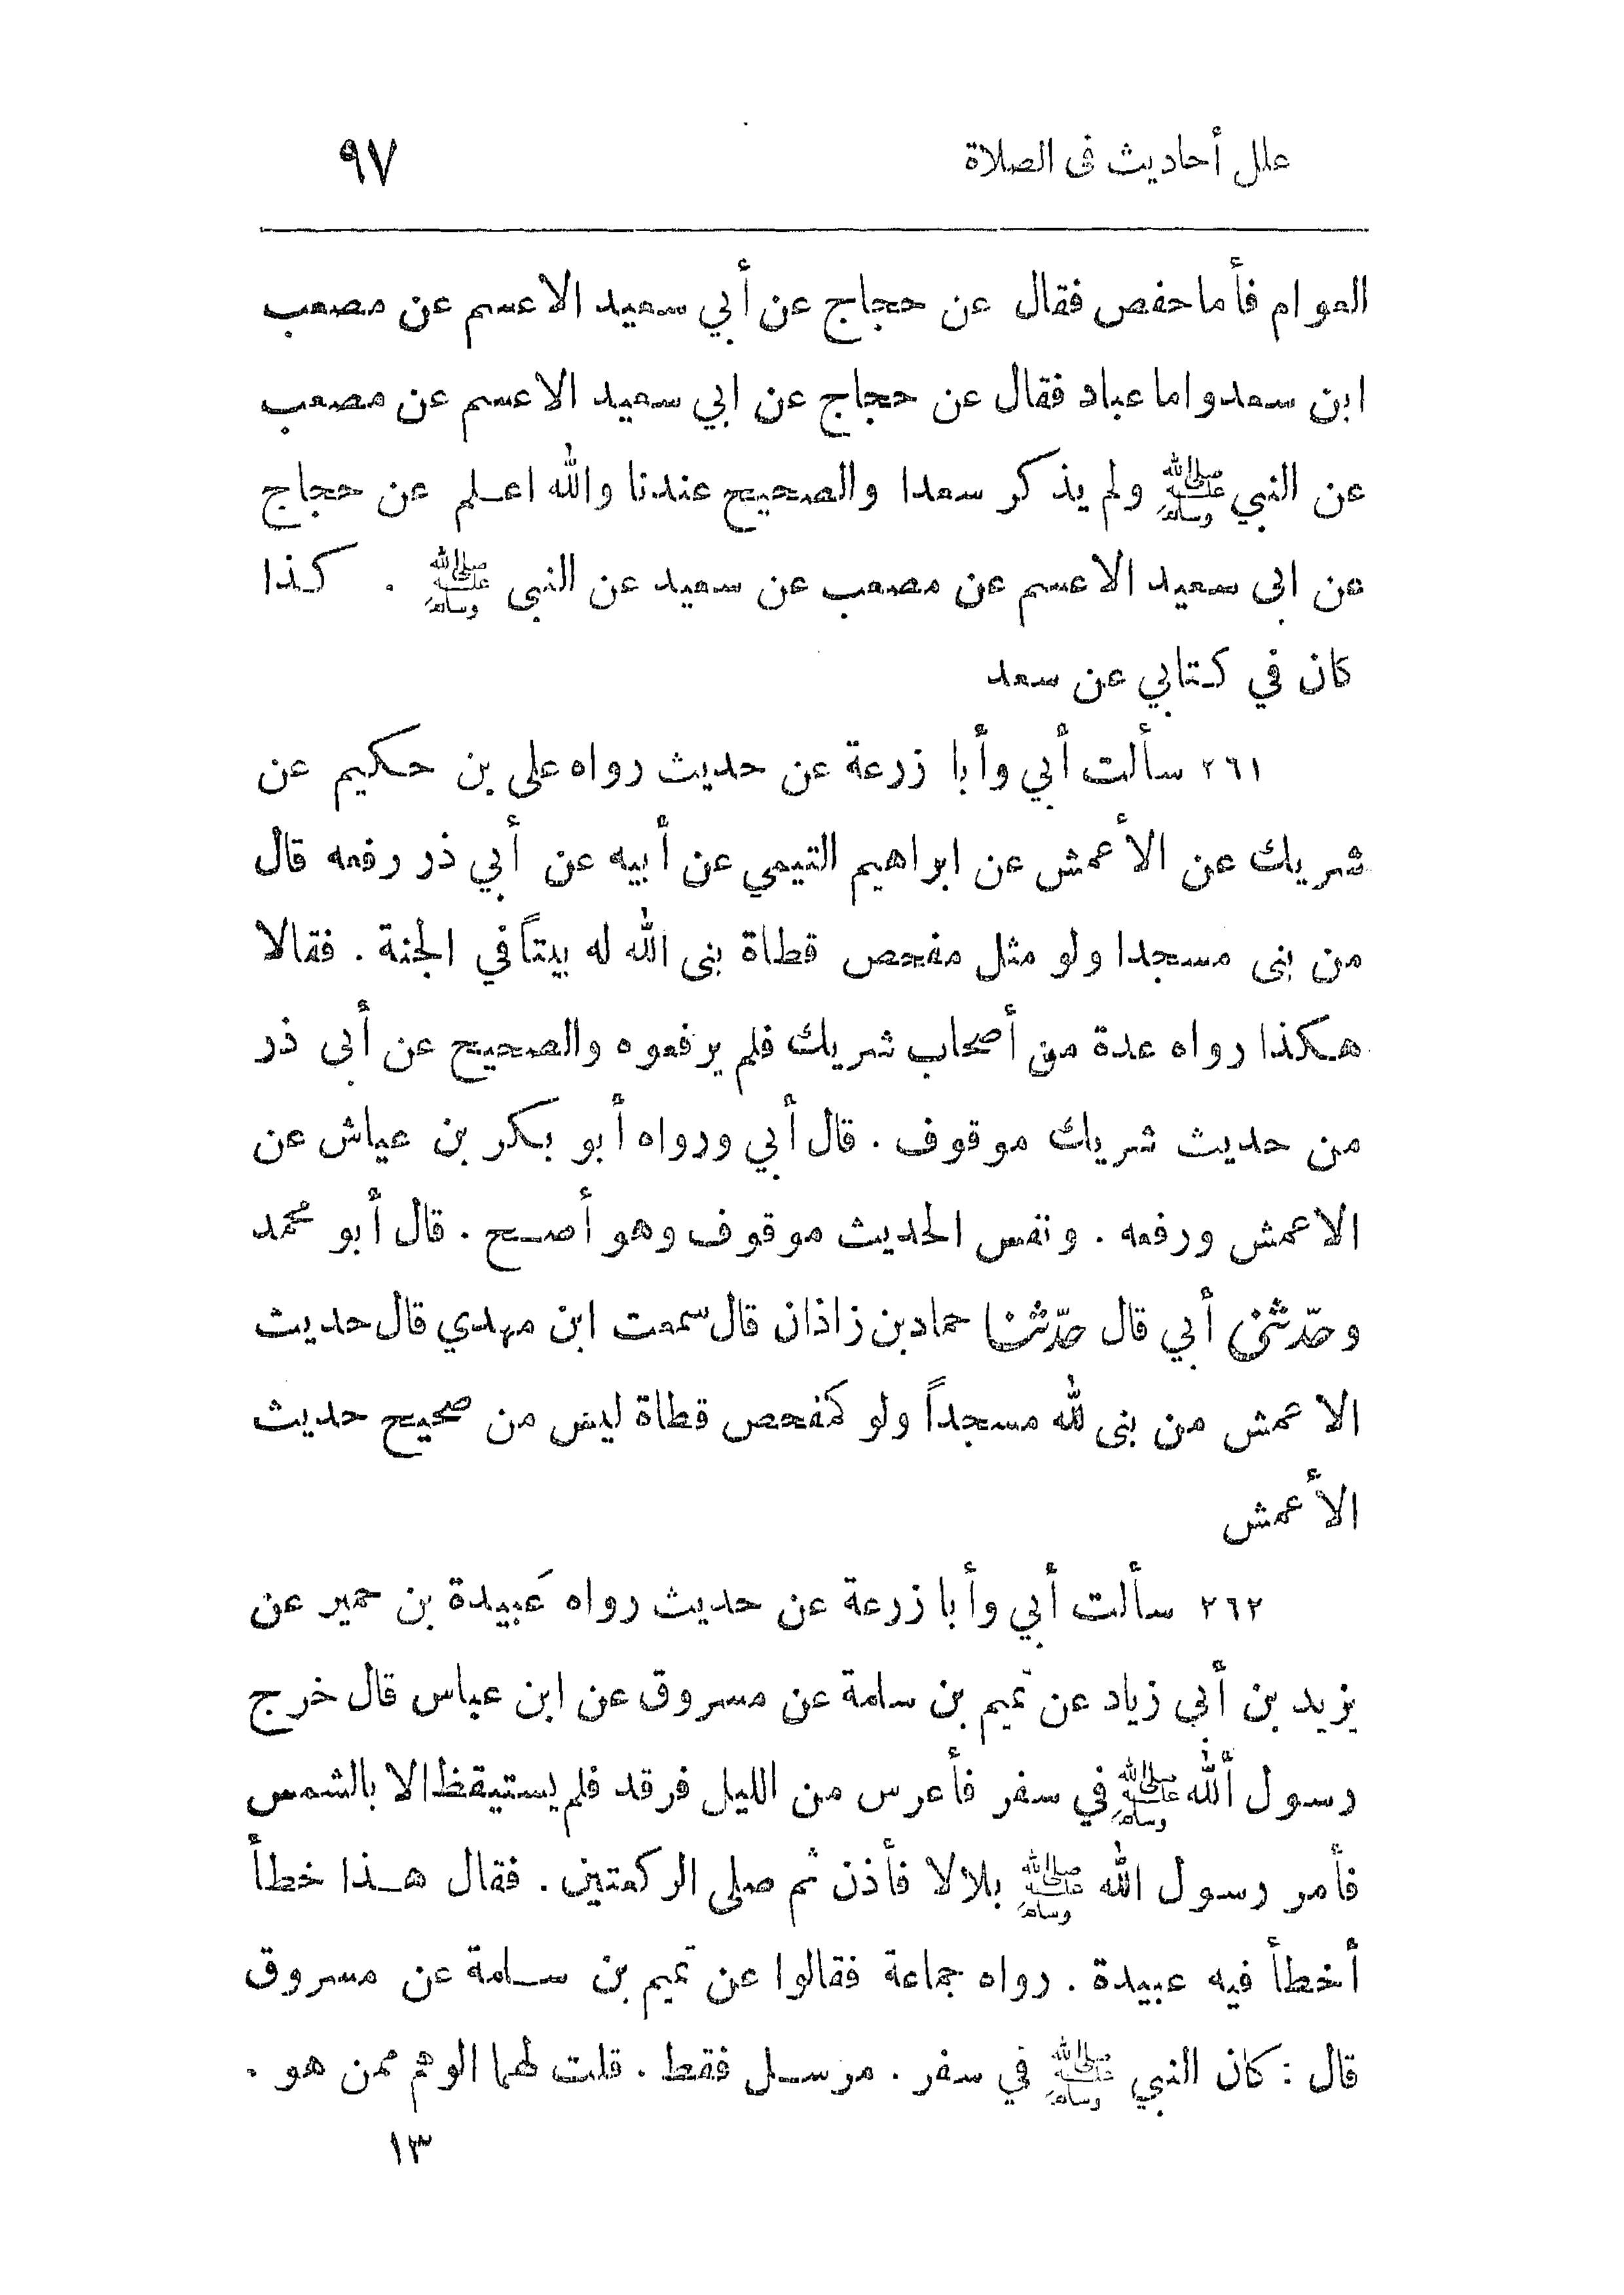 علل أحاديث في الصلاة ٩٧
العوام فأما حفص فقال عن حجاج عن أبي سعيد الاعسم عن مصعب
ابن سعد واما عباد فقال عن حجاج عن ابي سعيد الاعسم عن مصعب
عن النبي ﷺ ولم يذكر سعدا والصحيح عندنا والله اعلم عن حجاج
عن ابى سعيد الاعسم عن مصعب عن سعيد عن النبى ﷺ . كذا
كان في كتابي عن سعد
٢٦١ سألت أبي وأبا زرعة عن حديث رواه على بن حكيم عن
شريك عن الأعمش عن ابراهيم التيمي عن أبيه عن أبي ذر رفعه قال
من بنى مسجدا ولو مثل مفحص قطاة بنى الله له بيتاً في الجنة . فقالا
هكذا رواه عدة من أصحاب شريك فلم يرفعوه والصحيح عن أبى ذر
من حديث شريك موقوف . قال أبي ورواه أبو بكر بن عياش عن
الاعمش ورفعه . ونفس الحديث موقوف وهو أصح . قال أبو محمد
وحدّثنى أبي قال حدّثنا حماد بن زاذان قال سمعت ابن مهدي قال حديث
الاعمش من بنى لله مسجداً ولو كمفحص قطاة ليس من صحيح حديث
الأعمش
٢٦٢ سألت أبي وأبا زرعة عن حديث رواه عَبيدة بن حمير عن
يزيد بن أبي زياد عن تميم بن سلمة عن مسروق عن ابن عباس قال خرج
رسول ألله ﷺ في سفر فأعرس من الليل فرقد فلم يستيقظ الا بالشمس
فأمر رسول الله ﷺ بلالا فأذن ثم صلى الركعتين . فقال هذا خطأ
أخطأ فيه عبيدة . رواه جماعة فقالوا عن تميم بن سلمة عن مسروق
قال : كان النبي ﷺ في سفر . مرسل فقط . قلت لهما الوهم ممن هو .
١٣